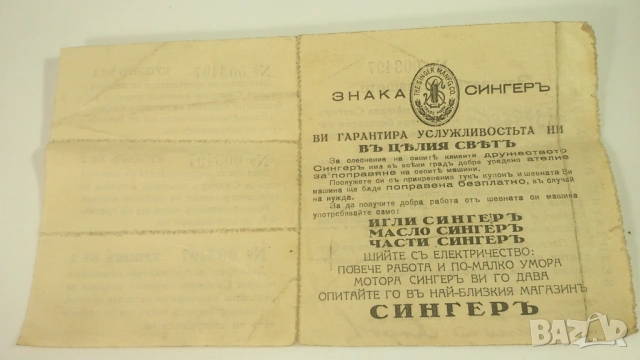 THE SINGER MANFG. CO.
ЗНАКА СИНГЕРЪ
ВИ ГАРАНТИРА УСЛУЖЛИВОСТЬТА НИ
ВЪ ЦѢЛИЯ СВѢТЪ
За олеснение на своитѣ клиенти дружеството
Сингеръ има въ всѣки градъ добре уредено ателие
за поправяне на своитѣ машини.
Послужете си съ прикрепения тукъ купонъ и шевната Ви
машина ще бѫде поправена безплатно, въ случай
на нужда.
За да получите добра работа отъ шевната си машина
употрѣбявайте само:
ИГЛИ СИНГЕРЪ
МАСЛО СИНГЕРЪ
ЧАСТИ СИНГЕРЪ
ШИЙТЕ СЪ ЕЛЕКТРИЧЕСТВО:
ПОВЕЧЕ РАБОТА И ПО-МАЛКО УМОРА
МОТОРА СИНГЕРЪ ВИ ГО ДАВА
ОПИТАЙТЕ ГО ВЪ НАЙ-БЛИЗКИЯ МАГАЗИНЪ
СИНГЕРЪ
bazar.bg